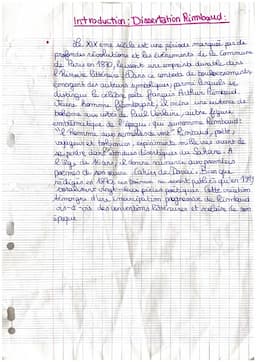 Introduction : Dissertation Rimbaud.
Le XIX ème siècle est une période marquée par de
profondes révolutions et les événements de la Commune
de Paris en 1870, laissant une empreinte durable dans
l'histoire littéraire. Dans ce contexte de bouleversements
émergent des auteurs symboliques, parmi lesquels se
distingue le célèbre poète français Arthur Rimbaud.
Jeune homme il mène une vie de
bohème aux côtés de Paul Verlaine, autre figure
emblématique de l'époque, qui surnomme Rimbaud :
"L'homme aux semelles de vent". Rimbaud, poète,
voyageur et bohémien, expérimente mille vies avant de
se perdre dans le Sahara. A
l'âge de 16 ans, il donne naissance aux premiers
poèmes de son œuvre Cahier de Douai. Bien que
rédigés en 1870, ces poèmes ne seront publiés qu'en 1919
vingt-deux pièces poétiques. Cette création
témoigne d'une émancipation progressive de Rimbaud
vis-à-vis des conventions littéraires et sociales de son
époque